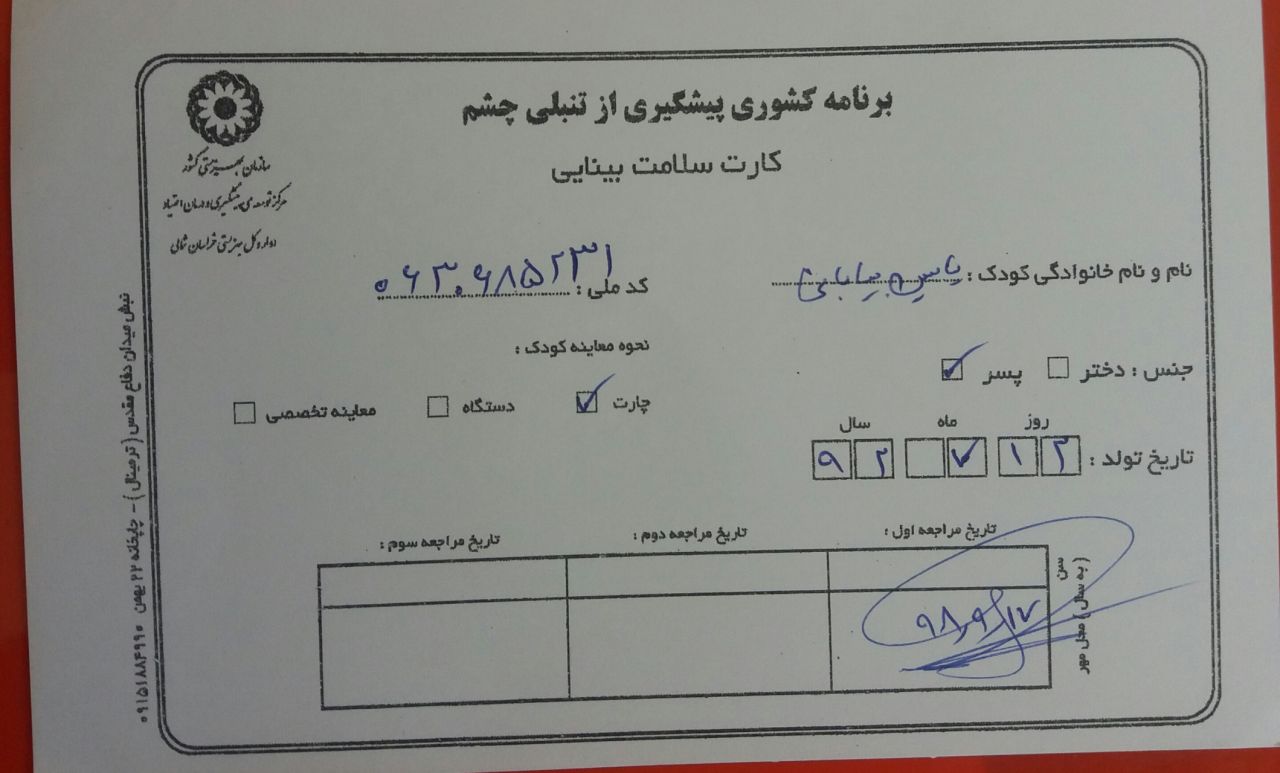 برنامه کشوری پیشگیری از تنبلی چشم
کارت سلامت بینایی
سازمان بهزیستی کشور
مرکز توسعه‌ی پیشگیری و درمان اعتیاد
اداره کل بهزیستی خراسان شمالی
نام و نام خانوادگی کودک : یاسین بیابانی
کد ملی :
جنس : دختر پسر
نحوه معاینه کودک :
چارت دستگاه معاینه تخصصی
روز ماه سال
تاریخ تولد : ۱۲ ۷ ۹۲
تاریخ مراجعه اول : تاریخ مراجعه دوم : تاریخ مراجعه سوم :
سن ( به سال ) محل مهر
۹۸,۹,۱۷
نبش میدان دفاع مقدس ( ترمینال ) - چاپخانه ۲۲ بهمن ۰۹۱۵۱۸۸۴۹۹۰